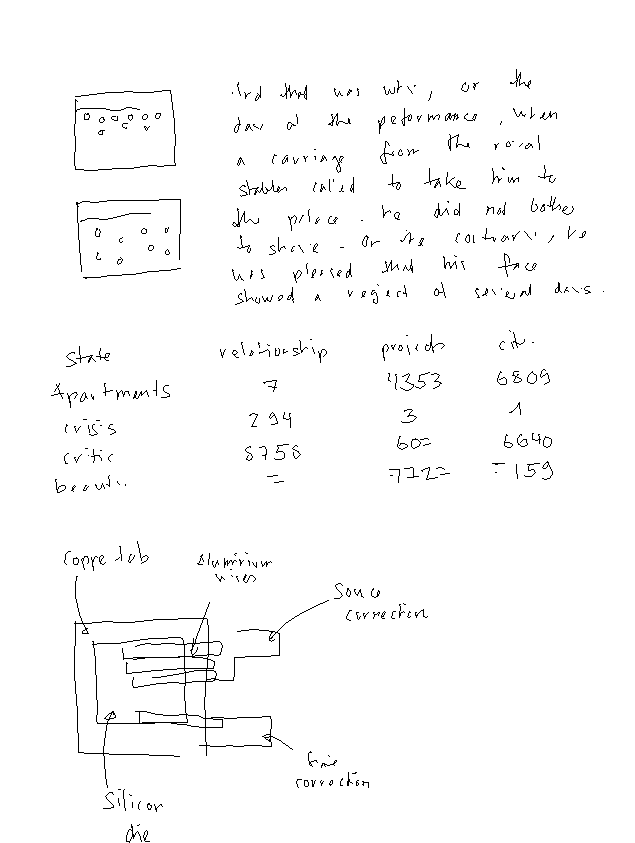 And that was why, on the
day of the peformance, when
a carriage from the royal
stables called to take him to
the palace, he did not bother
to shave. On the contrary, he
was pleased that his face
showed a neglect of several days.
state relationship projects city
Apartments 7 4353 6809
crisis 294 3 1
critic 8758 602 6640
beauty = 7722 =159
Coppe tab
Aluminium
wires
Souce
connection
connection
Silicon
die